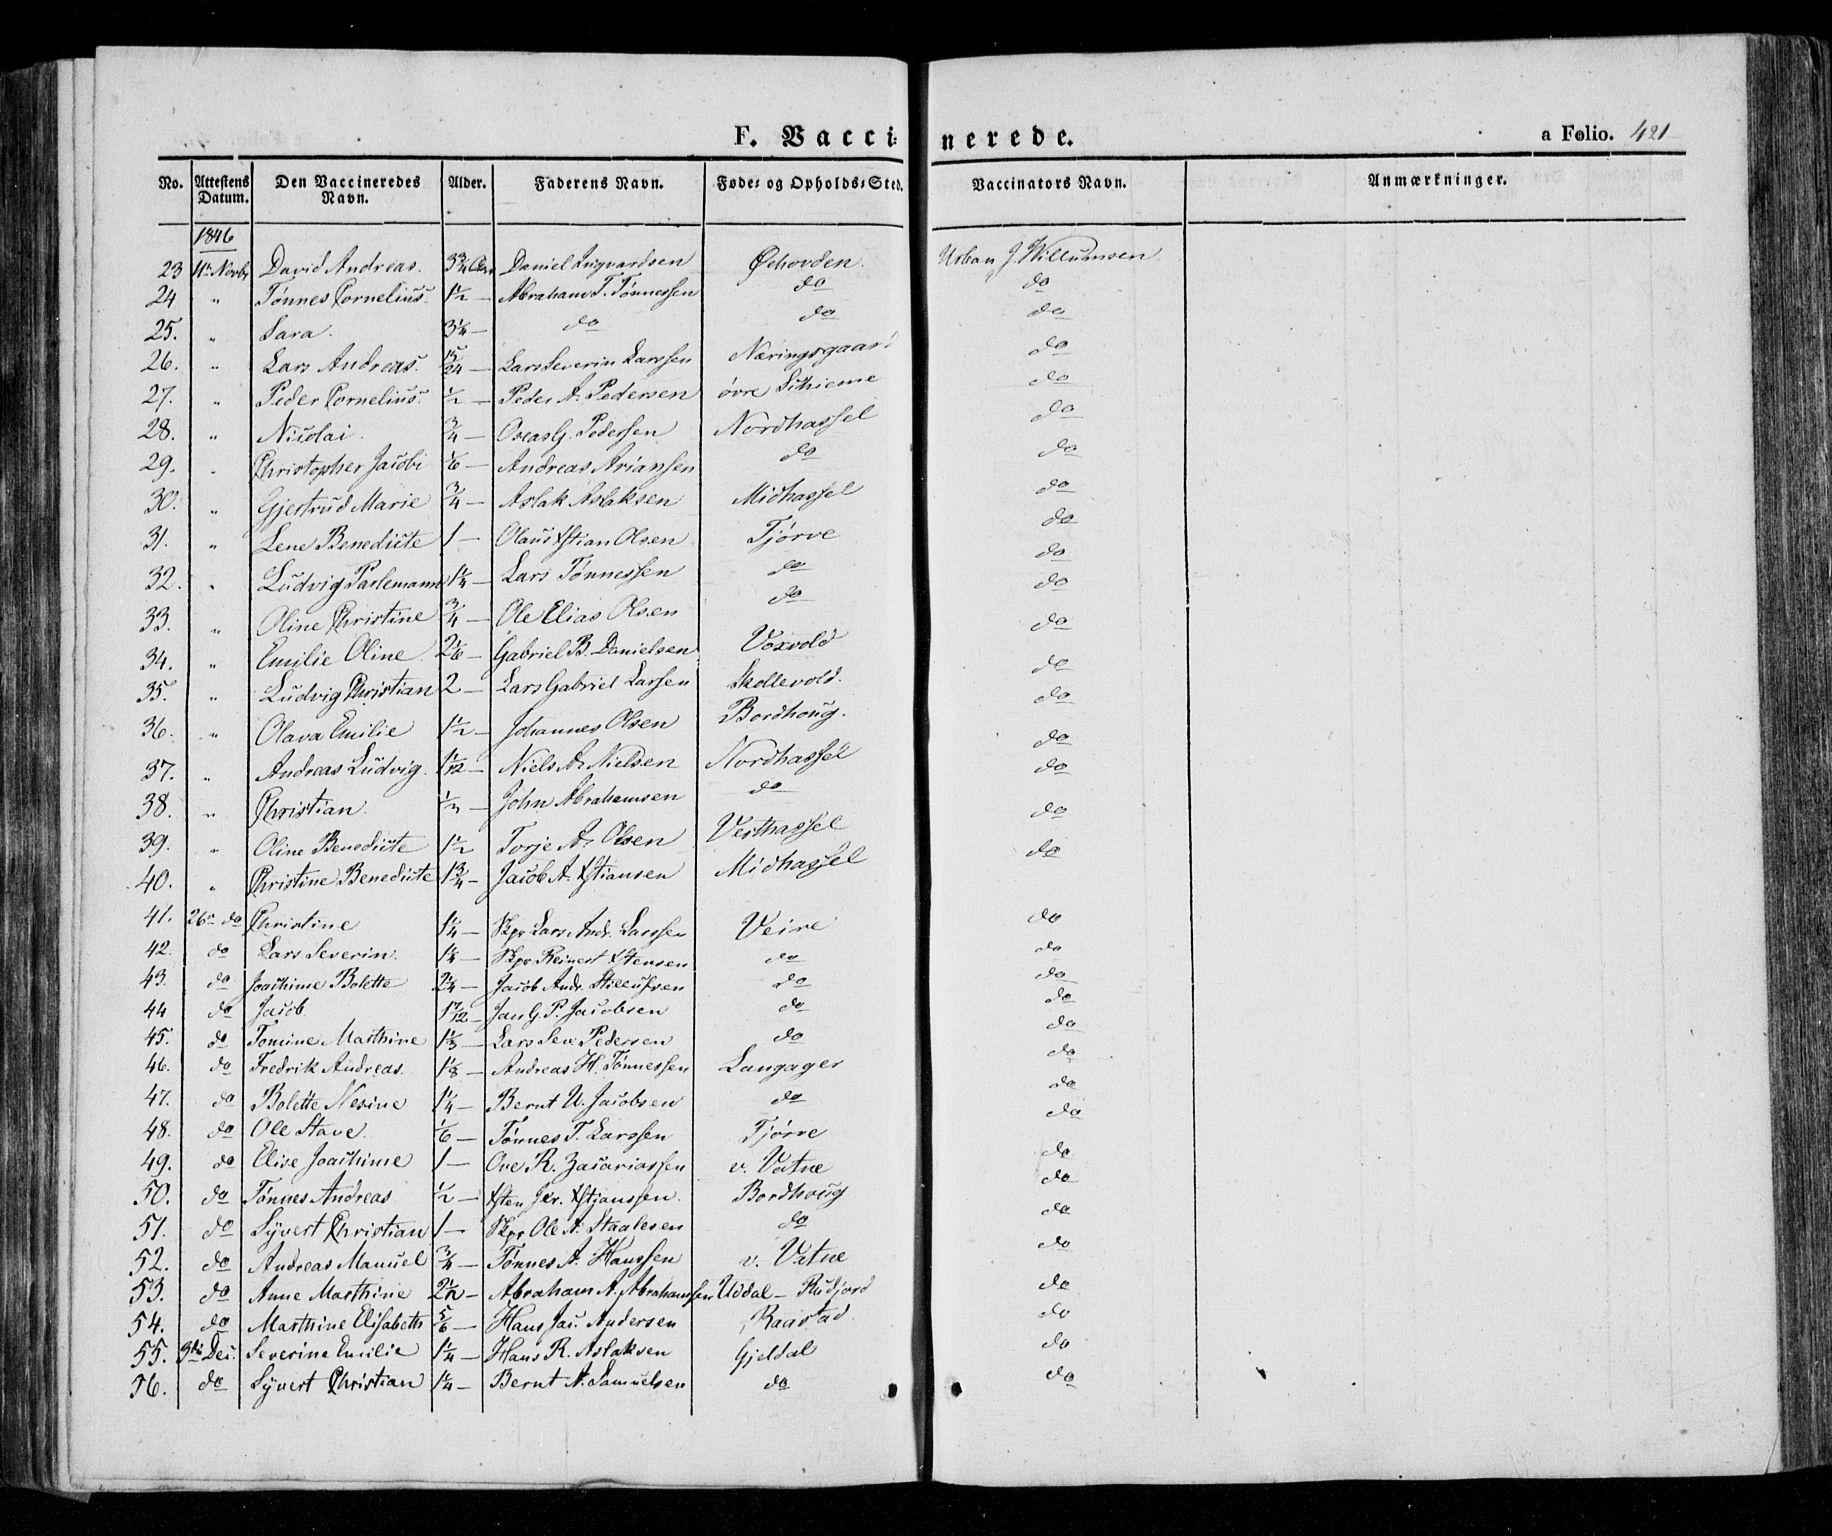 F. Vaccinerede.
a Folio. 421
No. Attestens Datum. Den Vaccineredes Navn. Alder. Faderens Navn. Føde- og Opholds-Sted. Vaccinators Navn. Anmærkninger.
1846
23 11te Novbr David Andreas. 3¾ Aar Daniel Ingvardsen Øehovden. Urban J. Willumsen
24 " Tønnes Cornelius. 1½ — Abraham T. Tønnessen do do
25. " Sara. 3¼ — do do do
26. " Lars Andreas. 15/24 — Lars Severin Larssen Næringsgaard do
27. " Peder Cornelius. ½ — Peder A. Pedersen øvre Skieme do
28. " Nicolai. ¾ — Oseas G. Pedersen Nordhassel do
29. " Christopher Jacobi 1/6 — Andreas Ariansen do do
30. " Gjertrud Marie ¾ — Aslak Aslaksen Midhassel do
31. " Lene Benedicte 1 — Olaus Xstian Olsen Tjørve do
32. " Ludvig Parlemann 1¼ — Lars Tønnessen do do
33. " Oline Christine ¾ — Ole Elias Olsen do do
34. " Emilie Oline. 2 1/6 — Gabriel B. Danielsen Voxvold do
35. " Ludvig Christian 2 — Lars Gabriel Larsen Skollevold. do
36. " Olava Emilie 1½ — Johannes Olsen Bordhoug. do
37. " Andreas Ludvig. 1 1/12 — Niels A. Nielsen Nordhassel do
38. " Christian. ½ — John Abrahamsen do do
39. " Oline Benedicte 1½ Torje A. Olsen Vesthassel do
40. " Christine Benedicte 1¾ — Jacob A. Xstiansen Midhassel do
41. 26n do Christine 1¼ — Skpr Lars Andr. Larssen Veire do
42. do Lars Severin. 1¼ — Skpr Reinert Xstensen do do
43. do Joachime Bolette 2¼ — Jacob Andr. Stillufsen do do
44 do Jacob 1 7/12 — Jan G. P. Jacobsen do do
45. do Tomine Marthine 1⅓ — Lars Sev. Pedersen do do
46. do Fredrik Andreas. 1⅛ — Andreas H. Tønnessen Langager do
47. do Bolette Nesine 1¼ — Bernt U. Jacobsen do do
48. do Ole Stave. 1/6 — Tønnes T. Larssen Tjørve do
49. do Elise Joachime 1 — Ove R. Zacariassen v. Vatne do
50. do Tønnes Andreas ½ — Xsten Jer. Xstjanssen. Bordhoug do
51. do Syvert Christian 1 — Skpr Ole A. Staalesen do do
52. do Andreas Manuel ¾ — Tønnes A. Hanssen v. Vatne do
53. do Anne Marthine 2½ — Abraham A. Abrahamssen Uddal — Rudjord do
54. do Marthine Elisabeth 5/6 — Hans Jac. Andersen Raastad do
55. 9de Dec. Severine Emilie 1¼ — Hans R. Aslaksen Gjeldal do
56. do Syvert Christian 1¼ — Bernt N. Samuelsen do do